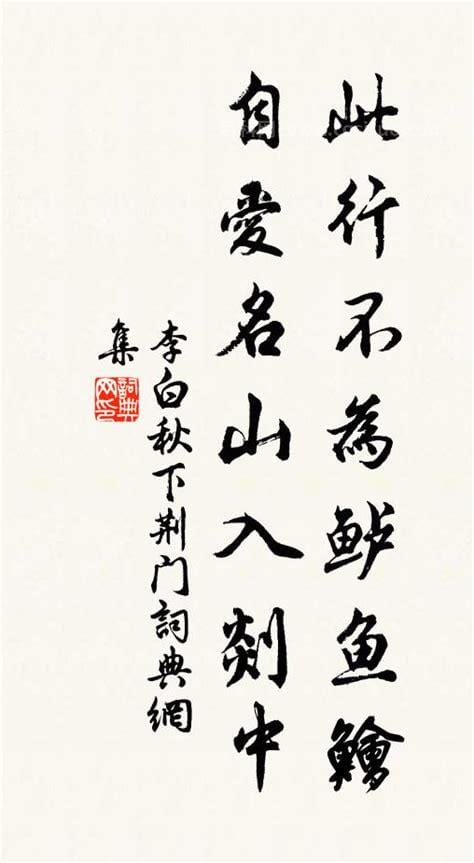 此行不為鲈鱼鱠
自愛名山入剡中
李白秋下荆门詞典網
集
詞典
网印